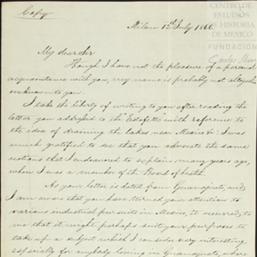 Copy
CENTRO DE
ESTUDIOS
DE HISTORIA
DE MEXICO
FUNDACIÓN
Carlos Slim
Milan 12th July 1866
My dear Sir
Though I have not the pleasure of a personal
acquaintance with you, my name is probably not altogether
unknown to you.
I take the liberty of writing to you after reading the
letter you addressed to the with reference to
the idea of draining the lakes near Mexico: I was
much gratified to see that you advocate the same
notions that I endeavored to explain many years ago,
when I was a member of the Board of health.
As your letter is dated from Guanajuato, and I
am aware that you have turned your attention to
various industrial pursuits in Mexico, it occurred to
me that it might perhaps suit your purposes to
take up a subject which I consider very interesting
especially for anybody living in Guanajuato, where